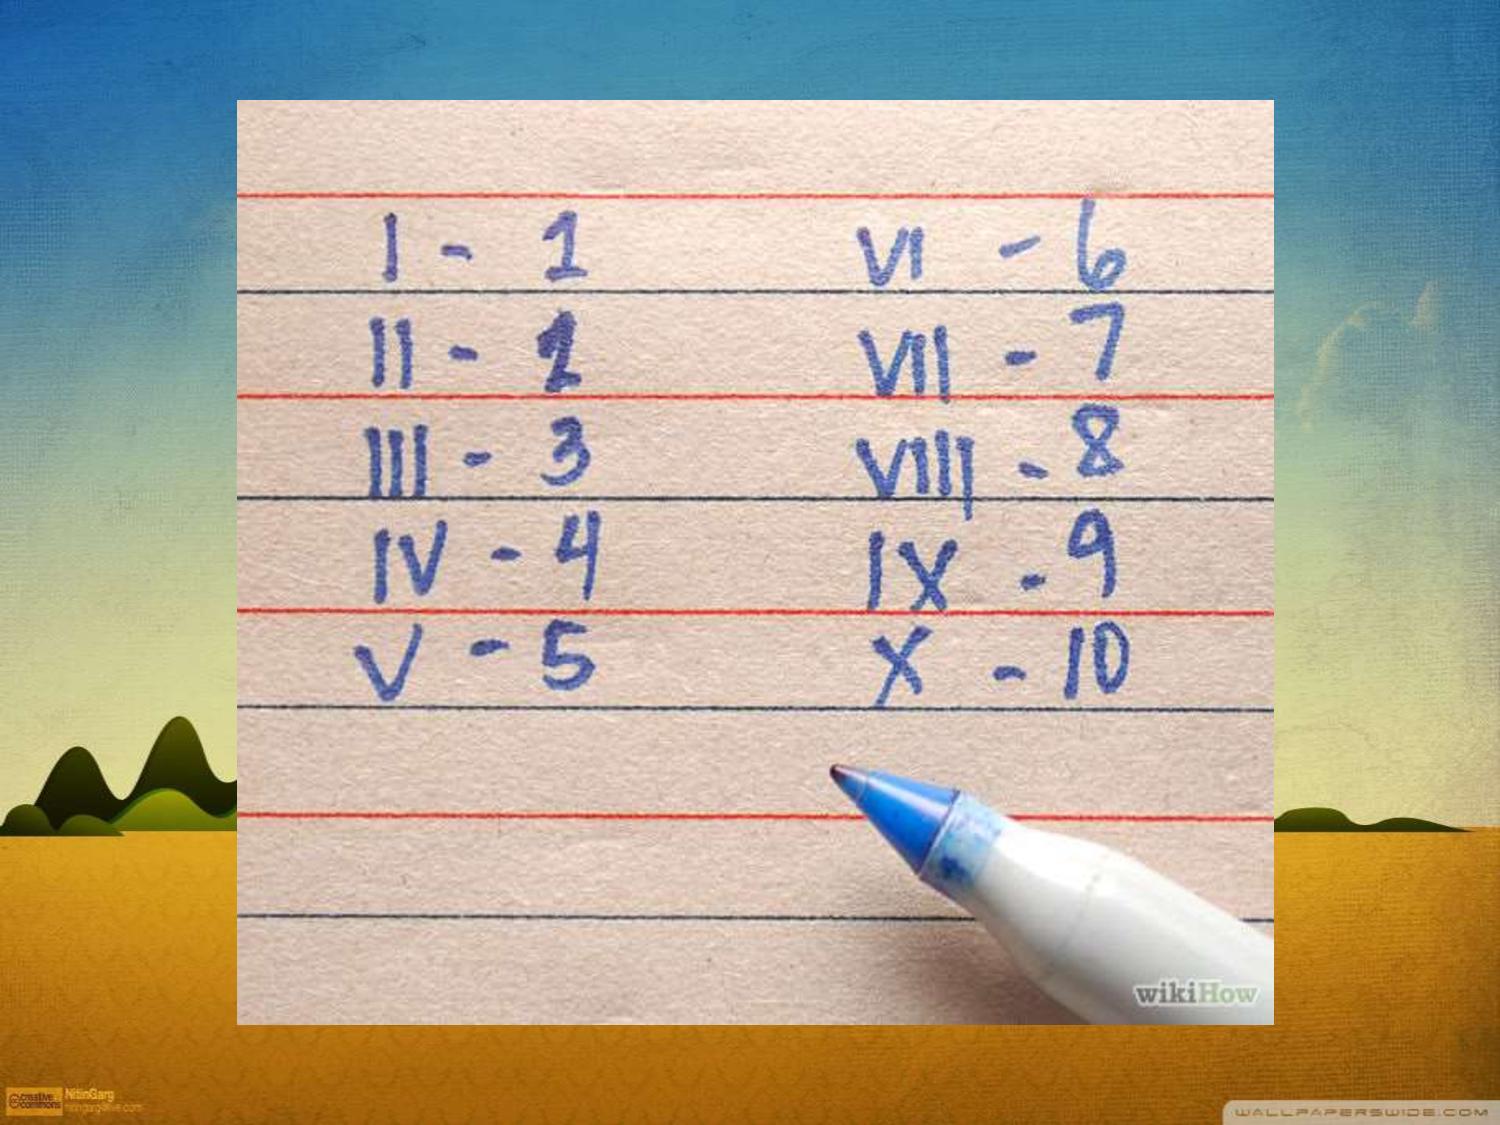 I - 1
II - 2
III - 3
IV - 4
V - 5
VI - 6
VII - 7
VIII - 8
IX - 9
X - 10
wikiHow
creative commons
NitinGarg
WALLPAPERSWIDE.COM